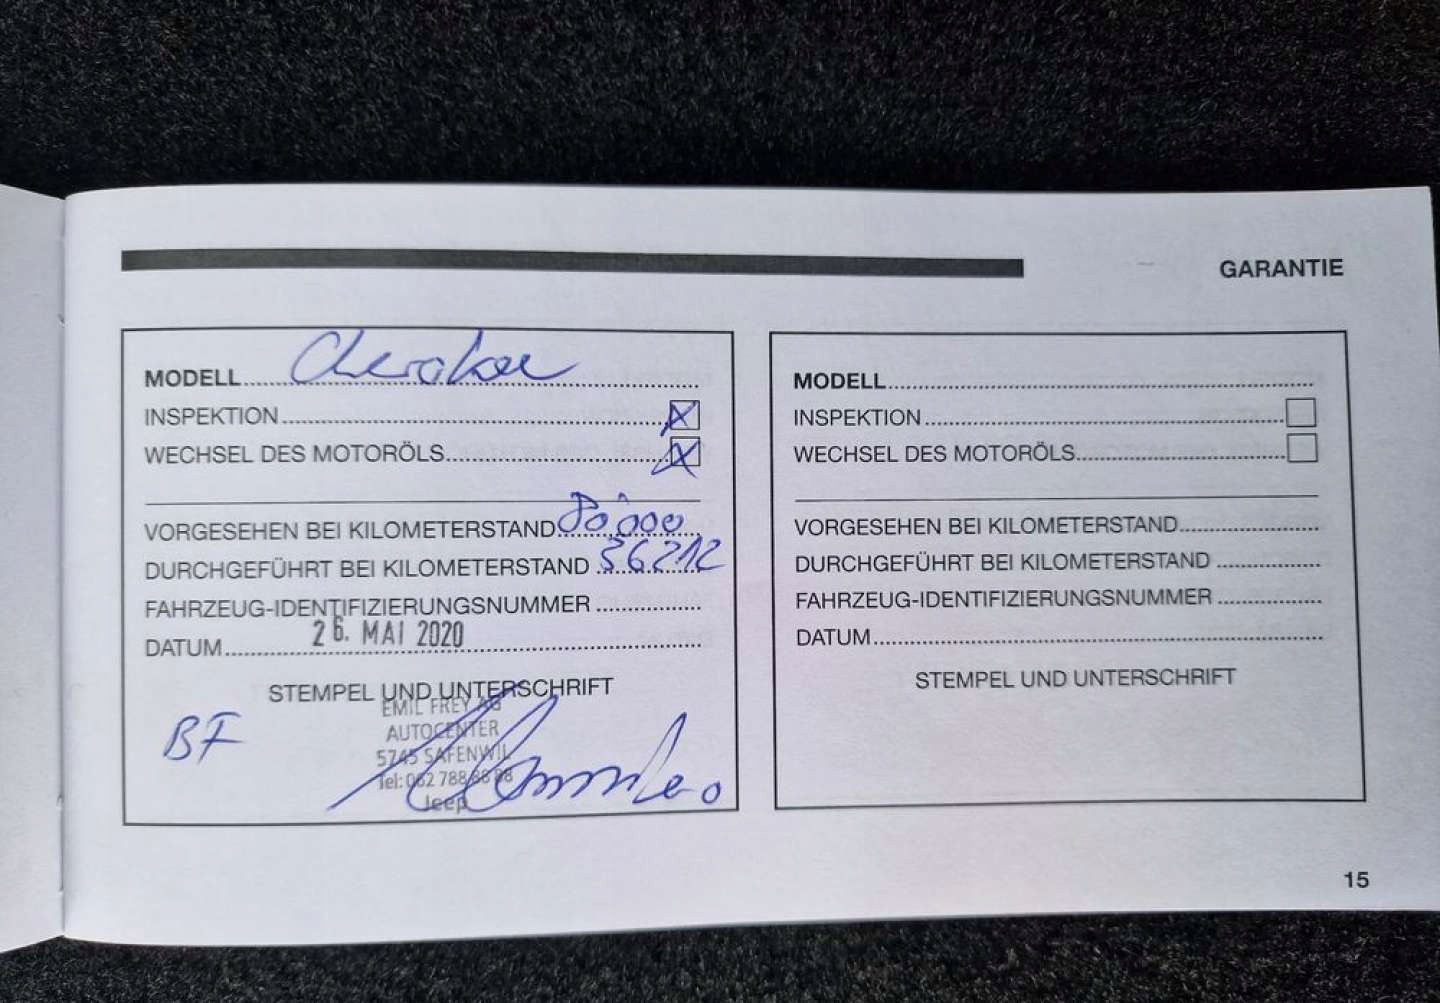 GARANTIE
MODELL Cherokee
INSPEKTION
WECHSEL DES MOTORÖLS
VORGESEHEN BEI KILOMETERSTAND 80'000
DURCHGEFÜHRT BEI KILOMETERSTAND 36212
FAHRZEUG-IDENTIFIZIERUNGSNUMMER
DATUM 26. MAI 2020
STEMPEL UND UNTERSCHRIFT
EMIL FREY AG
AUTOCENTER
5745 SAFENWIL
Tel: 062 788 88 88
Jeep
BF
MODELL
INSPEKTION
WECHSEL DES MOTORÖLS
VORGESEHEN BEI KILOMETERSTAND
DURCHGEFÜHRT BEI KILOMETERSTAND
FAHRZEUG-IDENTIFIZIERUNGSNUMMER
DATUM
STEMPEL UND UNTERSCHRIFT
15